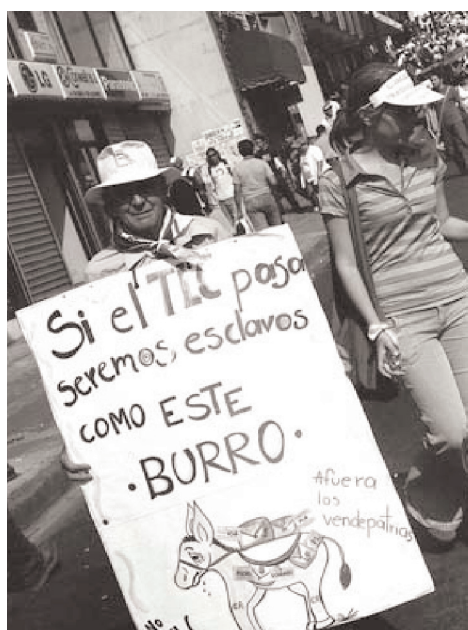 LG
Si el TLC pasa
seremos, esclavos
COMO ESTE
·BURRO·
Afuera
los
vendepatrias
NO